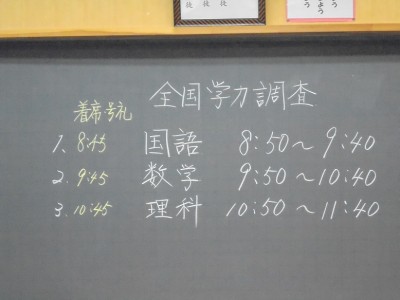 徒 徒 徒
う よう う
全国学力調査
着席号礼
1. 8:45 国語 8:50～9:40
2. 9:45 数学 9:50～10:40
3. 10:45 理科 10:50～11:40